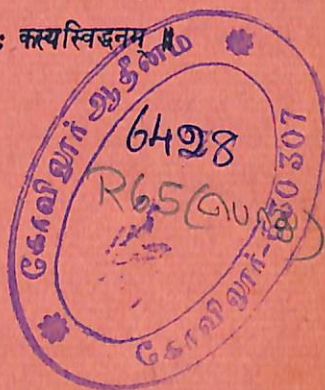 : कस्य स्विद्धनम् ॥
கோவிலூர் ஆதீனம்
6428
R65
கோவிலூர்-630307